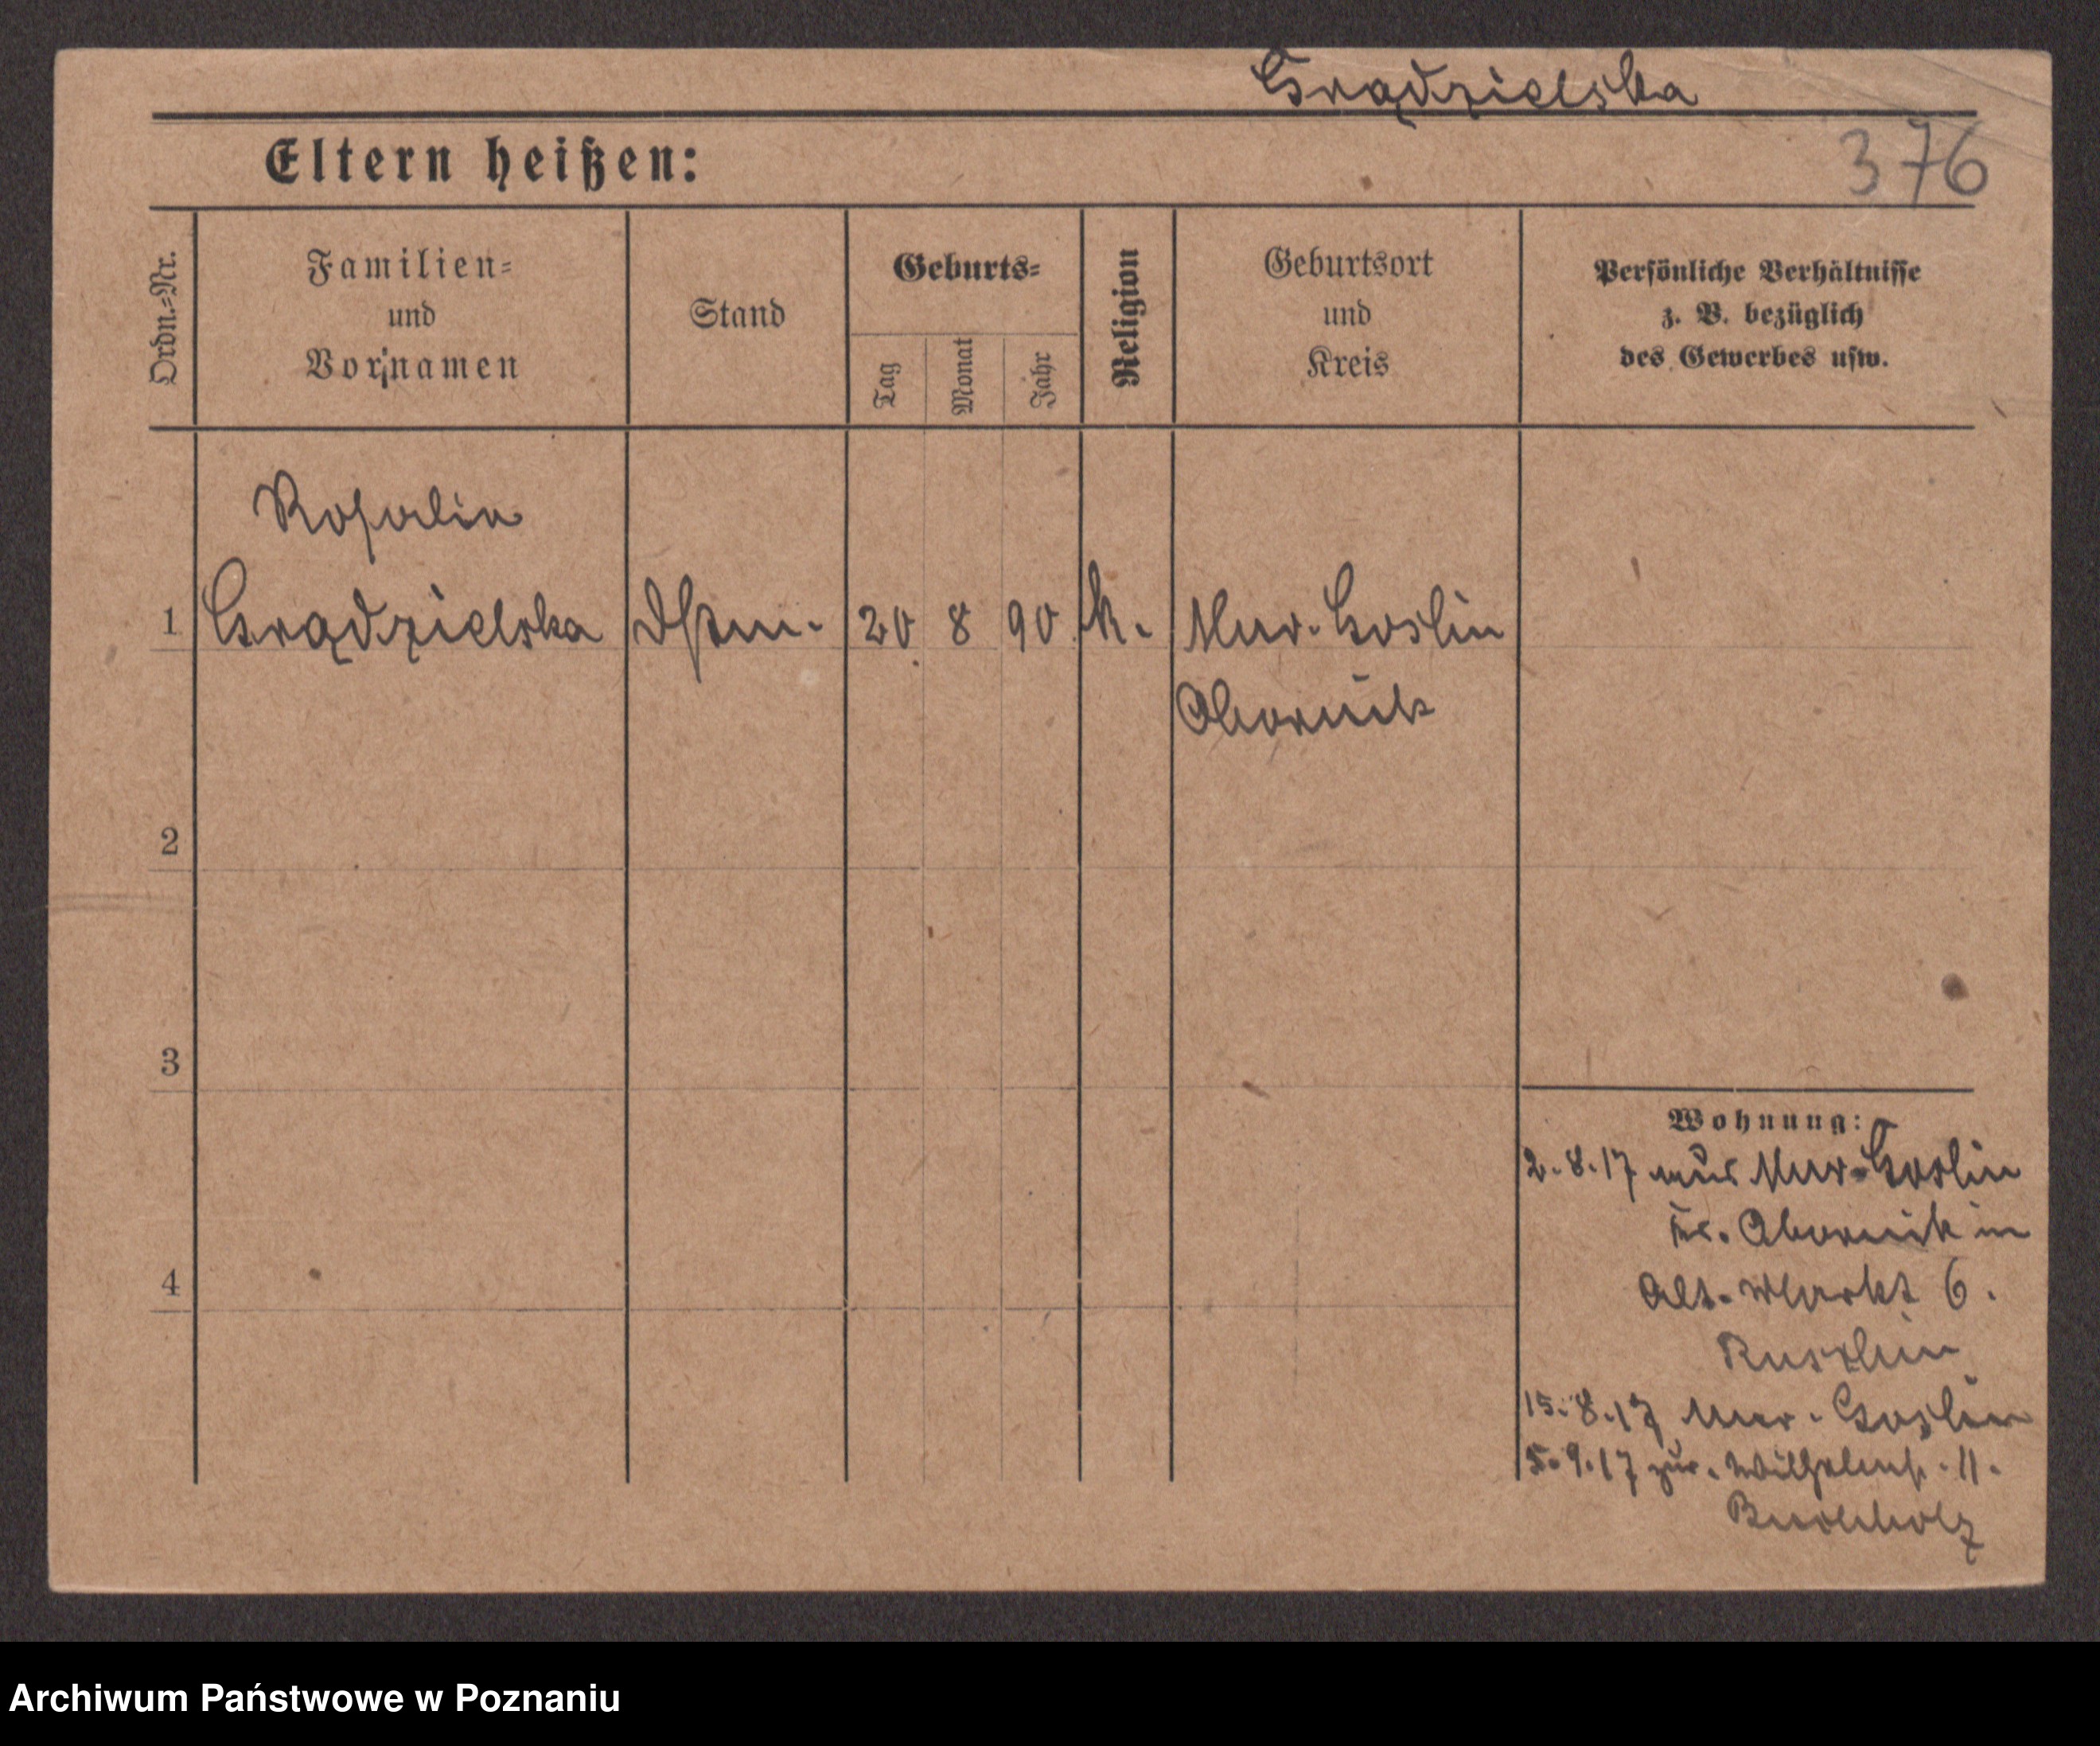 Grądzielska
376
Eltern heißen:
Ordn.=Nr.
Familien=
und
Vor=namen
Stand
Geburts=
Tag
Monat
Jahr
Religion
Geburtsort
und
Kreis
Persönliche Verhältnisse
z. B. bezüglich
des Gewerbes usw.
Rosalia
1 Grądzielska 20 8 90 k. Mur. Goslin
Obornik
2
3
4
Wohnung:
2.8.17 aus Mur-Goslin
Kr. Obornik in
Alt. Markt 6.
15.8.17 Mur. Goslin
5.9.17 zur. Wilhelmstr. 11.
Buchholz
Archiwum Państwowe w Poznaniu